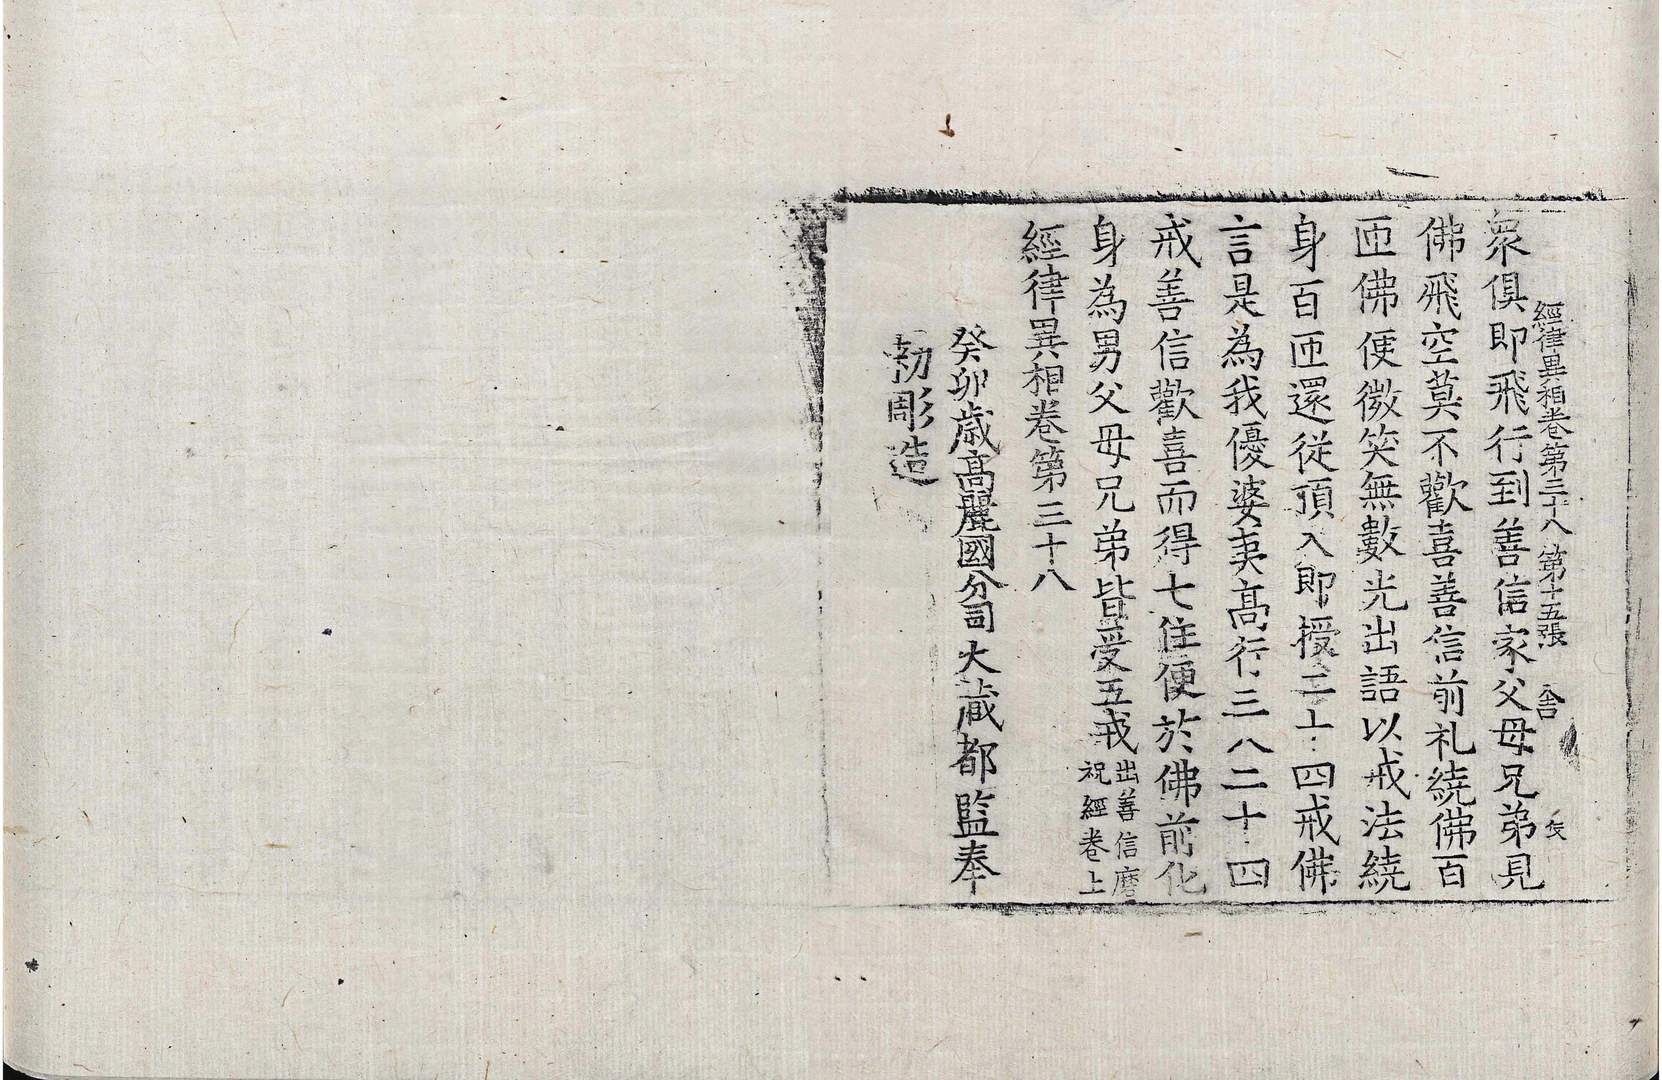 經律異相卷第三十八 第十五張 舍
衆俱即飛行到善信家父母兄弟見
佛飛空莫不歡喜善信前礼繞佛百
匝佛便微笑無數光出語以戒法繞
身百匝還從頂入即授二十四戒佛
言是為我優婆夷高行三八二十四
戒善信歡喜而得七住便於佛前化
身為男父母兄弟皆受五戒
出善信磨
祝經卷上
經律異相卷第三十八
癸卯歲高麗國分司大藏都監奉
勑彫造